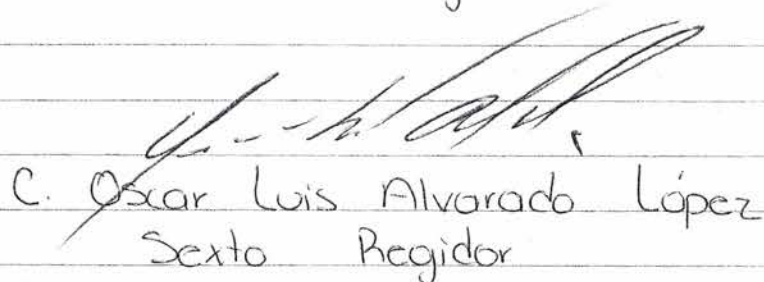 C. Oscar Luis Alvarado López
Sexto Regidor